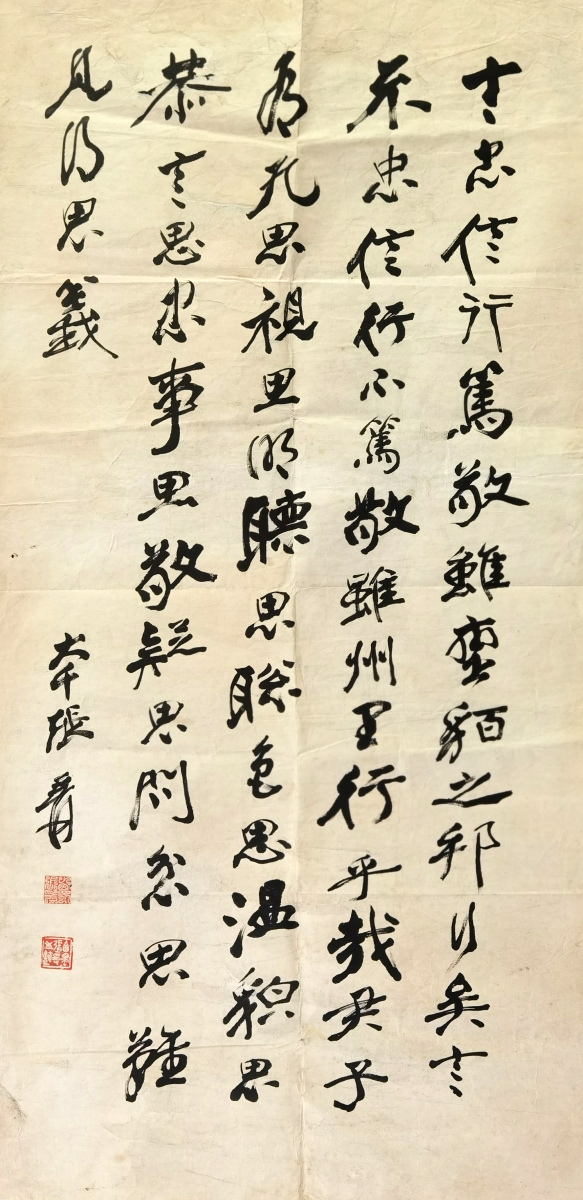 言忠信行篤敬雖蠻貊之邦行矣言
不忠信行不篤敬雖州里行乎哉君子
有九思視思明聽思聰色思溫貌思
恭言思忠事思敬疑思問忿思難
見得思義
大千張爰